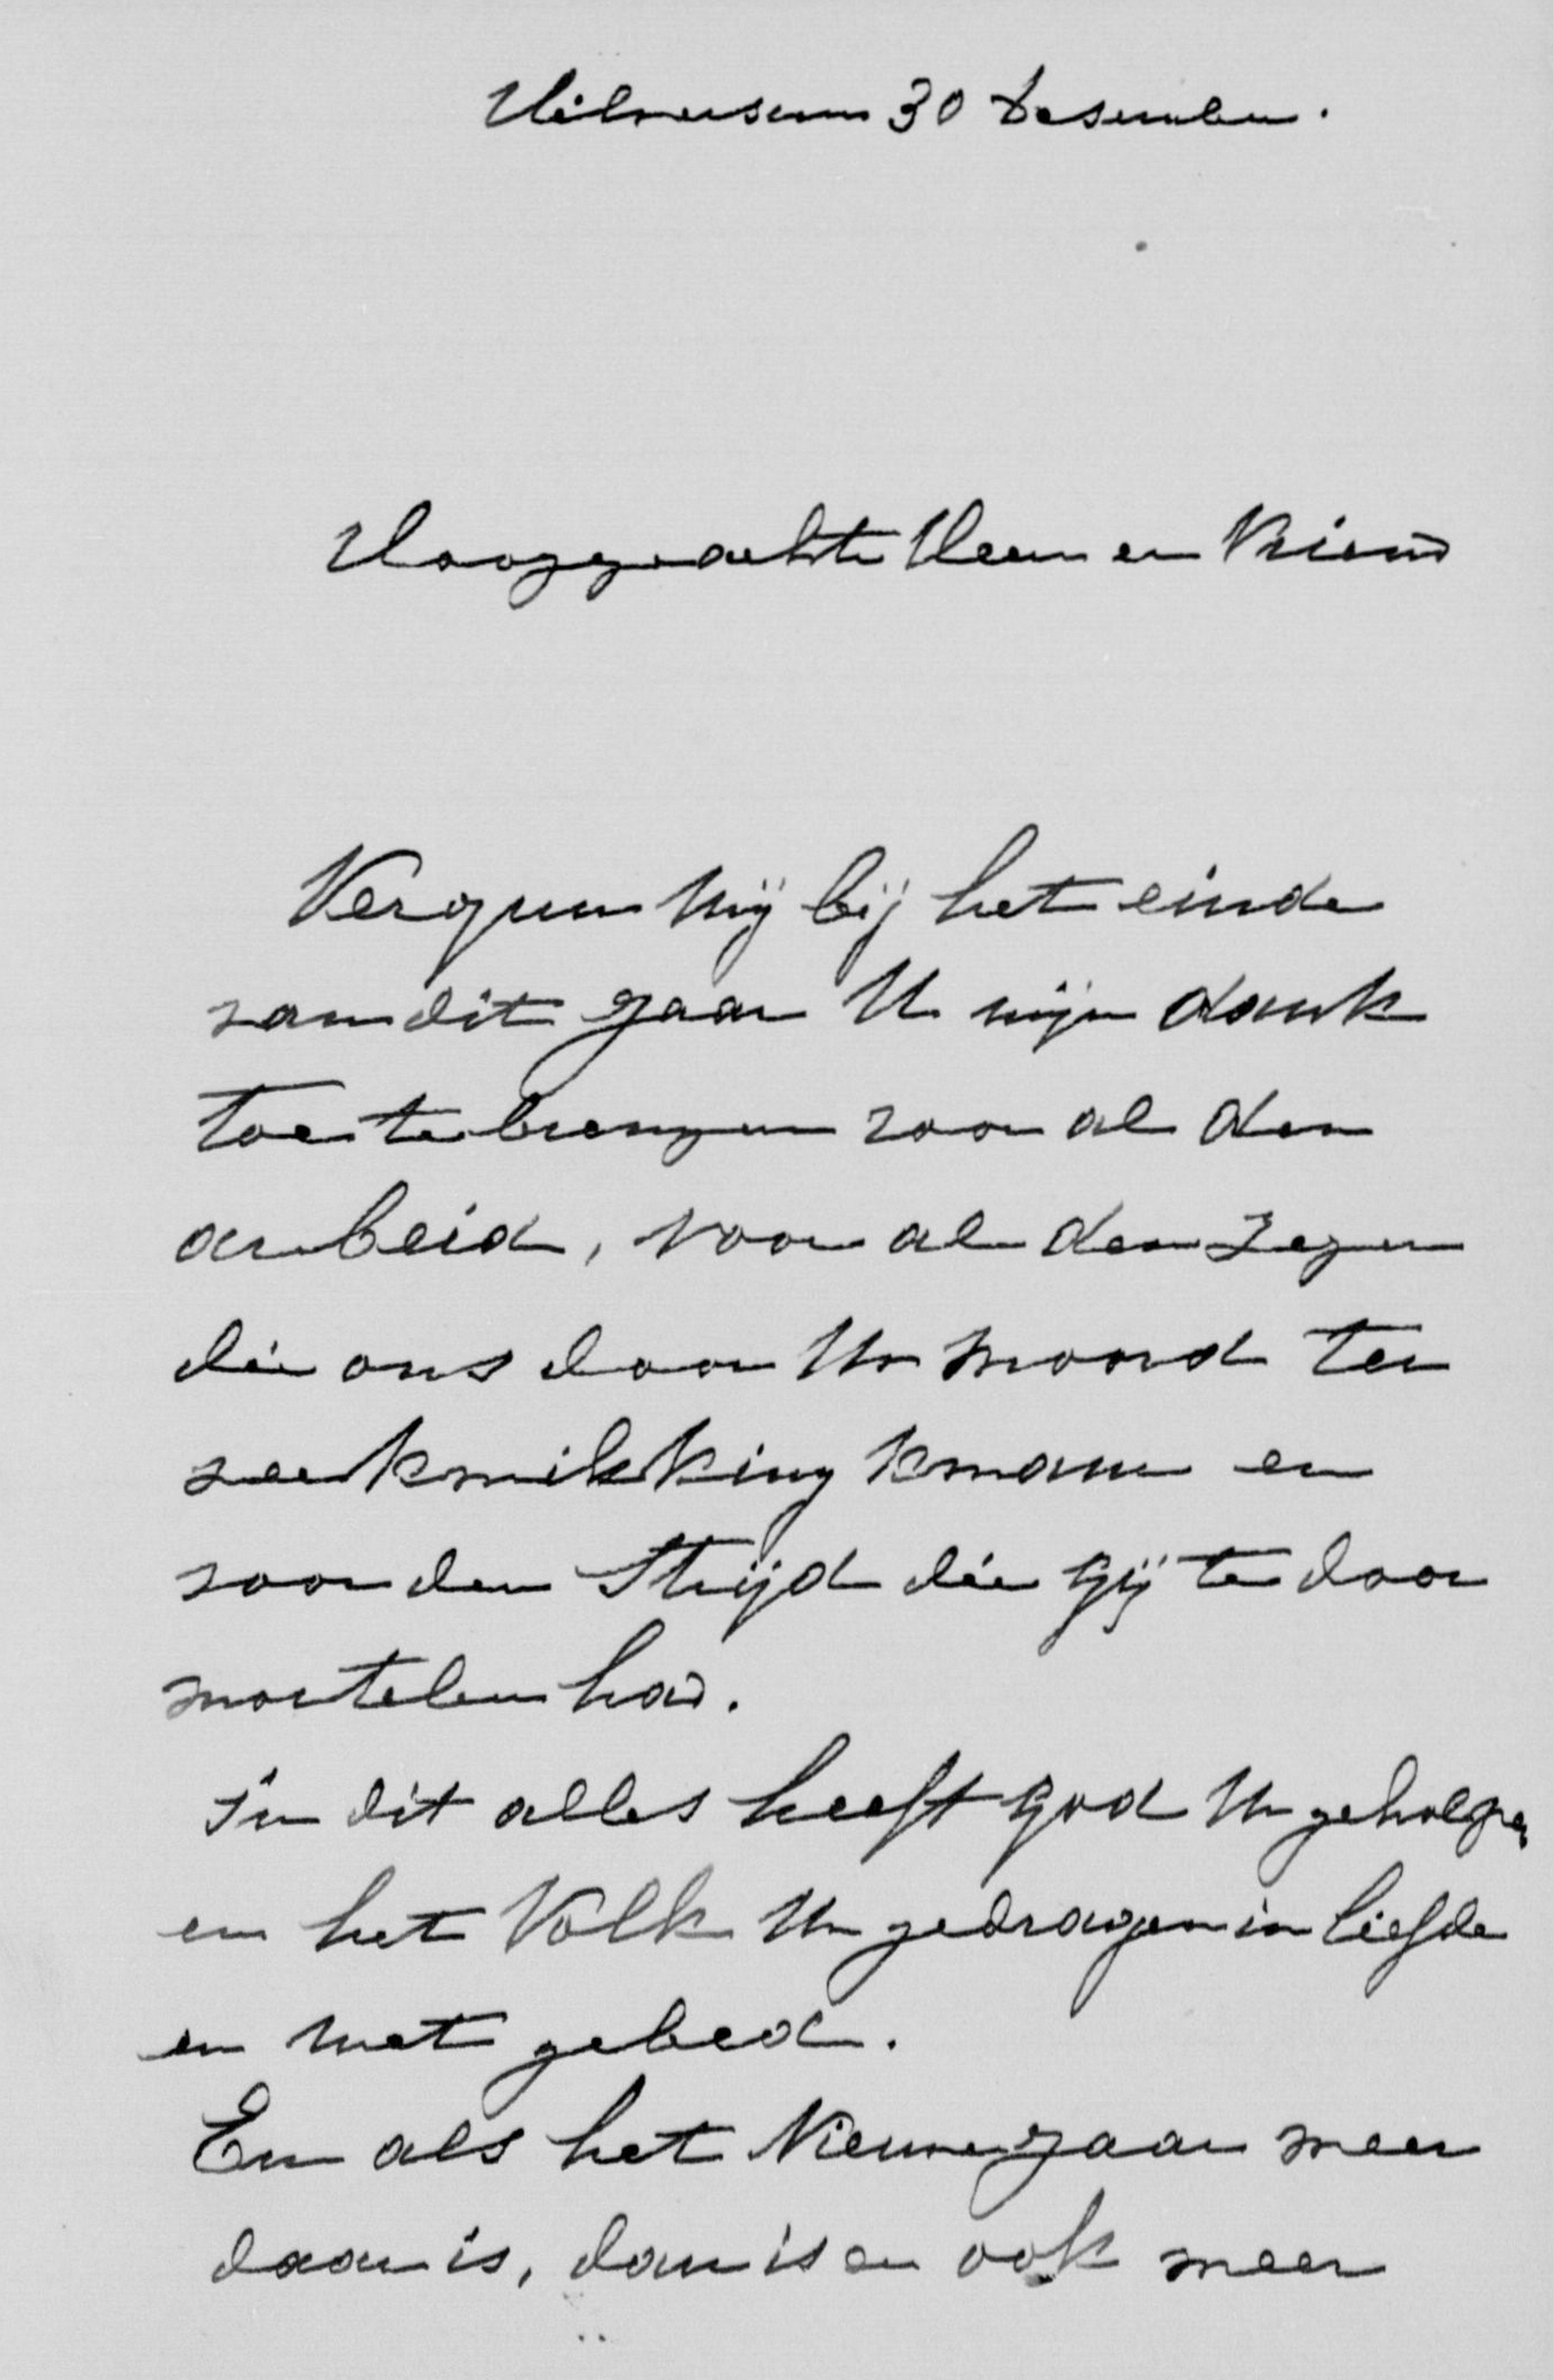 Hilversum 30 Desember.
Hooggeachte Heer en Vriend
Vergun mij bij het einde
van dit jaar U mijn dank
toe te brengen voor al den
arbeid, voor al den zegen
die ons door Uw woord ter
verkwikking kwam en
voor den Strijd die gij te door
worstelen had.
In dit alles heeft God U geholpen
en het Volk U gedragen in liefde
en met gebed.
En als het Nieuwejaar weer
daar is, dan is er ook weer